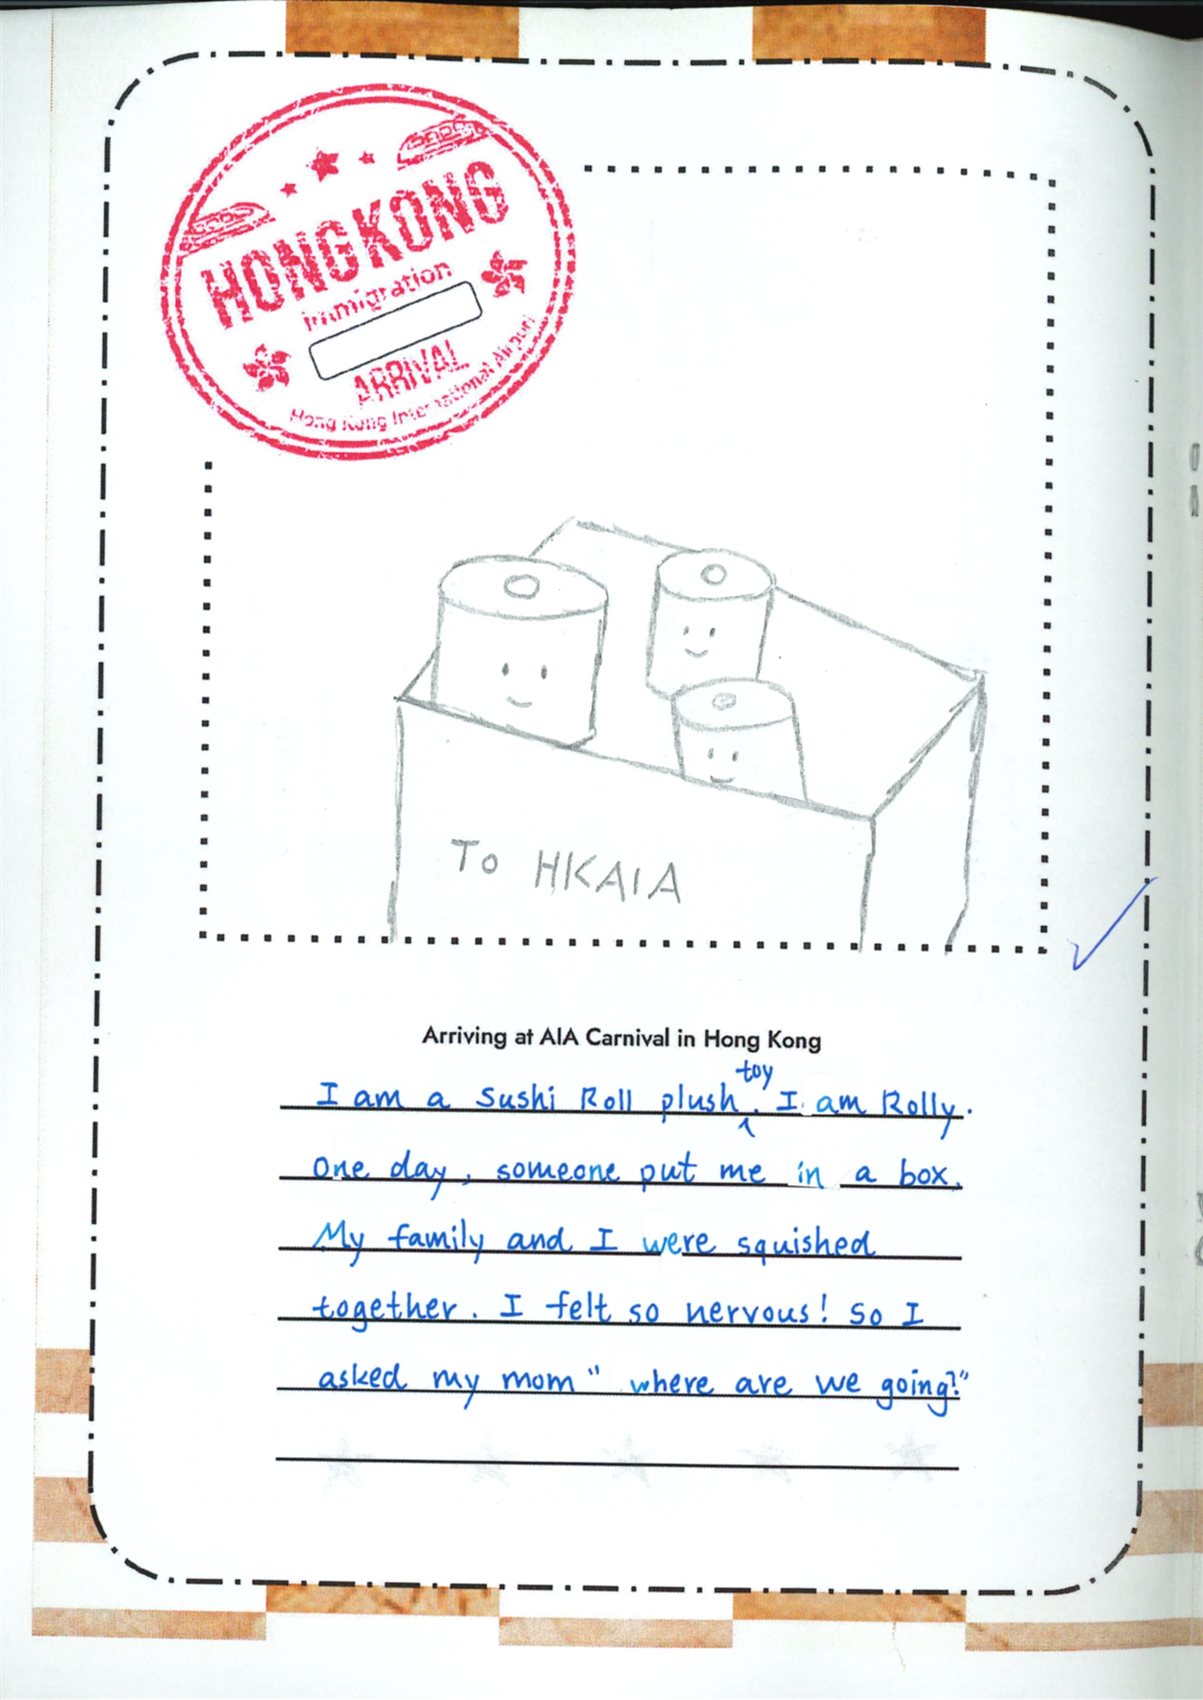 HONGKONG
immigration
ARRIVAL
Hong Kong International Airport
To HKAIA
Arriving at AIA Carnival in Hong Kong
I am a Sushi Roll plush toy. I am Rolly.
One day, someone put me in a box.
My family and I were squished
together. I felt so nervous! So I
asked my mom " where are we going?"